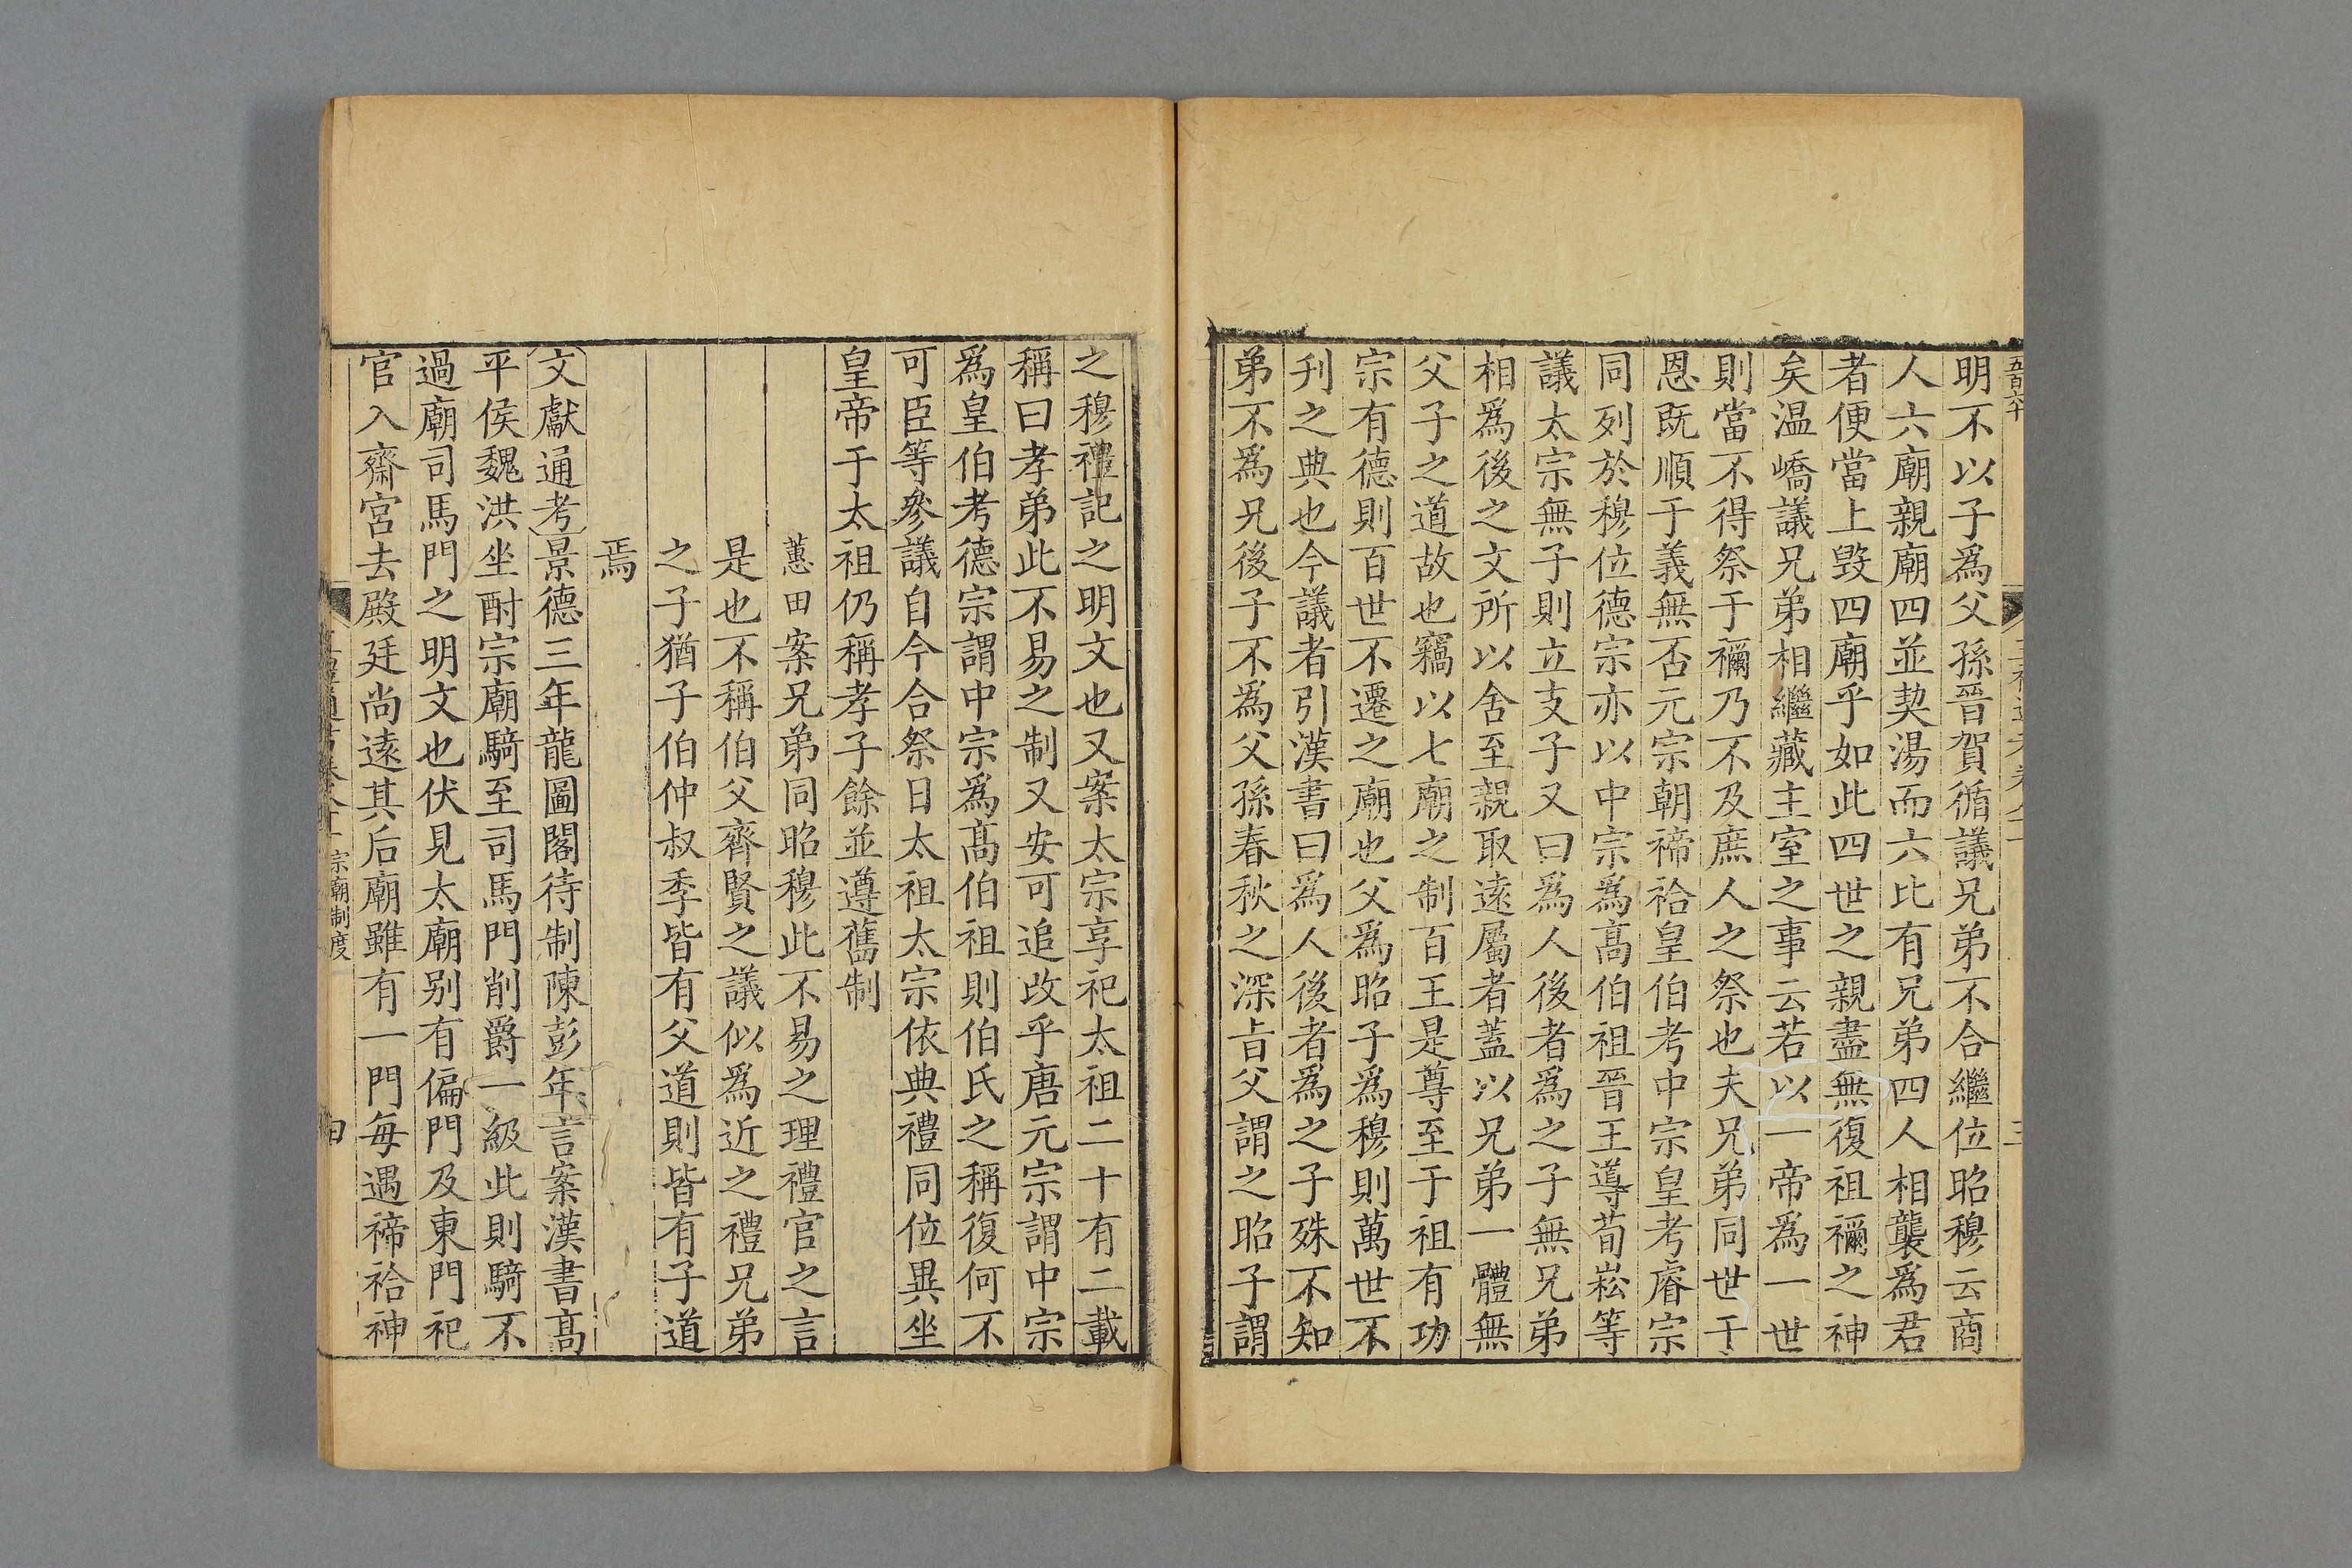 明不以子爲父孫晉賀循議兄弟不合繼位昭穆云商
人六廟親廟四並契湯而六比有兄弟四人相襲爲君
者便當上毀四廟乎如此四世之親盡無復祖禰之神
矣温嶠議兄弟相繼藏主室之事云若以一帝爲一世
則當不得祭于禰乃不及庶人之祭也夫兄弟同世于
恩既順于義無否元宗朝禘祫皇伯考中宗皇考睿宗
同列於穆位德宗亦以中宗爲髙伯祖晉王導荀崧等
議太宗無子則立支子又曰爲人後者爲之子無兄弟
相爲後之文所以舍至親取遠屬者蓋以兄弟一體無
父子之道故也竊以七廟之制百王是尊至于祖有功
宗有德則百世不遷之廟也父爲昭子爲穆則萬世不
刋之典也今議者引漢書曰爲人後者爲之子殊不知
弟不爲兄後子不爲父孫春秋之深旨父謂之昭子謂
之穆禮記之明文也又案太宗享祀太祖二十有二載
稱曰孝弟此不易之制又安可追改乎唐元宗謂中宗
爲皇伯考德宗謂中宗爲髙伯祖則伯氏之稱復何不
可臣等參議自今合祭日太祖太宗依典禮同位異坐
皇帝于太祖仍稱孝子餘並遵舊制
蕙田案兄弟同昭穆此不易之理禮官之言
是也不稱伯父齊賢之議似爲近之禮兄弟
之子猶子伯仲叔季皆有父道則皆有子道
焉
文獻通考景德三年龍圖閣待制陳彭年言案漢書髙
平侯魏洪坐酎宗廟騎至司馬門削爵一級此則騎不
過廟司馬門之明文也伏見太廟别有偏門及東門祀
官入齋宮去殿廷尚遠其后廟雖有一門每遇禘祫神
宗廟制度